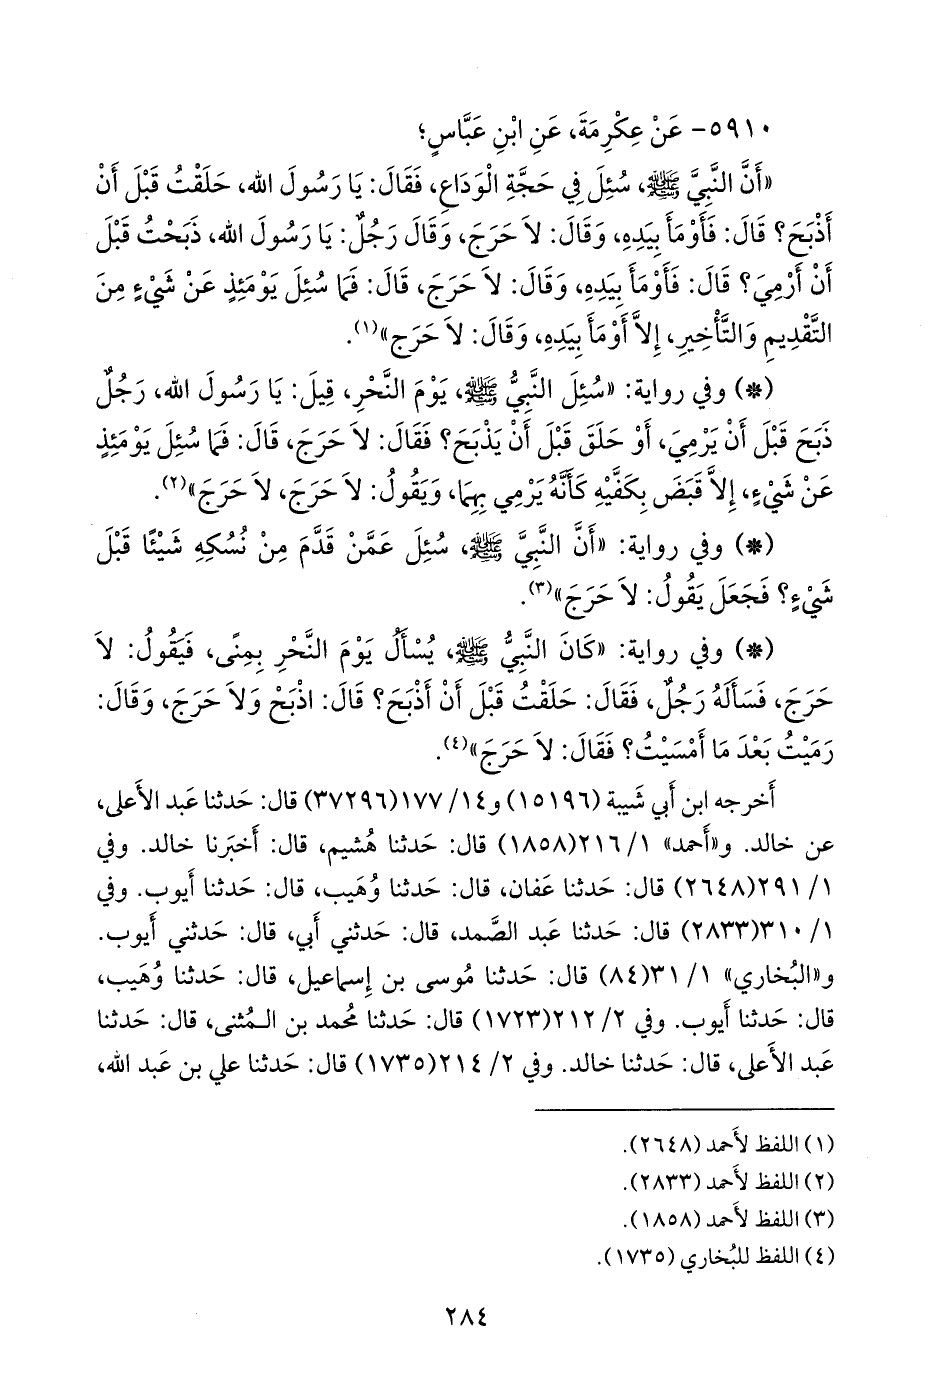 ٥٩١٠- عَنْ عِكْرِمَةَ، عَنِ ابْنِ عَبَّاسٍ؛
«أَنَّ النَّبِيَّ ﷺ، سُئِلَ فِي حَجَّةِ الْوَدَاعِ، فَقَالَ: يَا رَسُولَ الله، حَلَقْتُ قَبْلَ أَنْ
أَذْبَحَ؟ قَالَ: فَأَوْمَأَ بِيَدِهِ، وَقَالَ: لاَ حَرَجَ، وَقَالَ رَجُلٌ: يَا رَسُولَ الله، ذَبَحْتُ قَبْلَ
أَنْ أَرْمِيَ؟ قَالَ: فَأَوْمَأَ بِيَدِهِ، وَقَالَ: لاَ حَرَجَ، قَالَ: فَمَا سُئِلَ يَوْمَئِذٍ عَنْ شَيْءٍ مِنَ
التَّقْدِيمِ وَالتَّأْخِيرِ، إِلاَّ أَوْمَأَ بِيَدِهِ، وَقَالَ: لاَ حَرَجَ»(١).
(*) وفي رواية: «سُئِلَ النَّبِيُّ ﷺ، يَوْمَ النَّحْرِ، قِيلَ: يَا رَسُولَ الله، رَجُلٌ
ذَبَحَ قَبْلَ أَنْ يَرْمِيَ، أَوْ حَلَقَ قَبْلَ أَنْ يَذْبَحَ؟ فَقَالَ: لاَ حَرَجَ، قَالَ: فَمَا سُئِلَ يَوْمَئِذٍ
عَنْ شَيْءٍ، إِلاَّ قَبَضَ بِكَفَّيْهِ كَأَنَّهُ يَرْمِي بِهِمَا، وَيَقُولُ: لاَ حَرَجَ، لاَ حَرَجَ»(٢).
(*) وفي رواية: «أَنَّ النَّبِيَّ ﷺ، سُئِلَ عَمَّنْ قَدَّمَ مِنْ نُسُكِهِ شَيْئًا قَبْلَ
شَيْءٍ؟ فَجَعَلَ يَقُولُ: لاَ حَرَجَ»(٣).
(*) وفي رواية: «كَانَ النَّبِيُّ ﷺ، يُسْأَلُ يَوْمَ النَّحْرِ بِمِنًى، فَيَقُولُ: لاَ
حَرَجَ، فَسَأَلَهُ رَجُلٌ، فَقَالَ: حَلَقْتُ قَبْلَ أَنْ أَذْبَحَ؟ قَالَ: اذْبَحْ وَلاَ حَرَجَ، وَقَالَ:
رَمَيْتُ بَعْدَ مَا أَمْسَيْتُ؟ فَقَالَ: لاَ حَرَجَ»(٤).
أَخرجه ابن أَبي شَيبة (١٥١٩٦) و١٤/ ١٧٧(٣٧٢٩٦) قال: حَدثنا عَبد الأَعلى،
عن خالد. و«أَحمد» ١/ ٢١٦(١٨٥٨) قال: حَدثنا هُشيم، قال: أَخبَرنا خالد. وفي
١/ ٢٩١(٢٦٤٨) قال: حَدثنا عَفان، قال: حَدثنا وُهَيب، قال: حَدثنا أَيوب. وفي
١/ ٣١٠(٢٨٣٣) قال: حَدثنا عَبد الصَّمد، قال: حَدثني أَبي، قال: حَدثني أَيوب.
و«البُخاري» ١/ ٣١(٨٤) قال: حَدثنا مُوسى بن إِسماعيل، قال: حَدثنا وُهَيب،
قال: حَدثنا أَيوب. وفي ٢/ ٢١٢(١٧٢٣) قال: حَدثنا مُحمد بن الـمُثنى، قال: حَدثنا
عَبد الأَعلى، قال: حَدثنا خالد. وفي ٢/ ٢١٤(١٧٣٥) قال: حَدثنا علي بن عَبد الله،
(١) اللفظ لأَحمد (٢٦٤٨).
(٢) اللفظ لأَحمد (٢٨٣٣).
(٣) اللفظ لأَحمد (١٨٥٨).
(٤) اللفظ للبُخاري (١٧٣٥).
٢٨٤